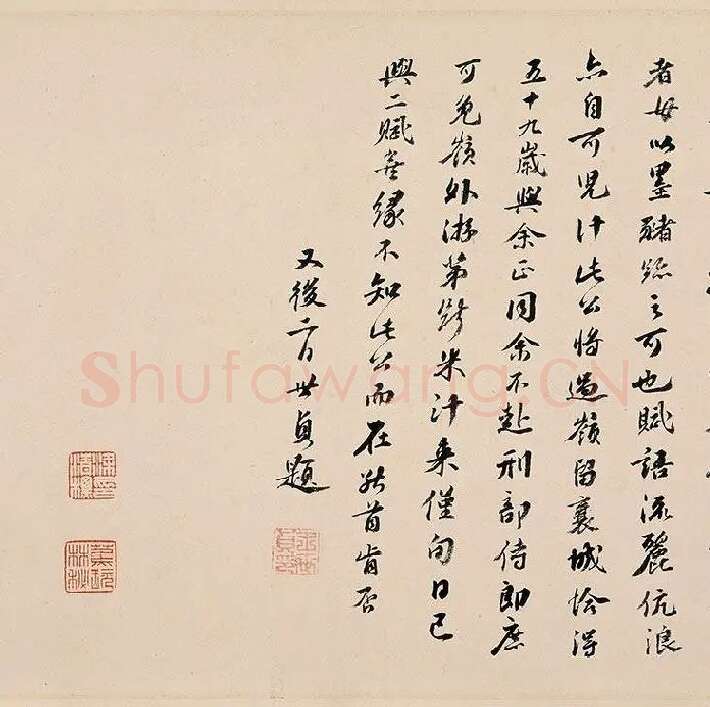 者毋以墨豬疑之可也賦語流麗伉浪
亦自可兒計此公將過嶺留襄城恰得
五十九歲與余正同余不赴刑部侍郎庶
可免嶺外游第對米汁來僅旬日已
與二賦喜緣不知此公而在能首肯否
又後二日世貞題
Shufawang.CN